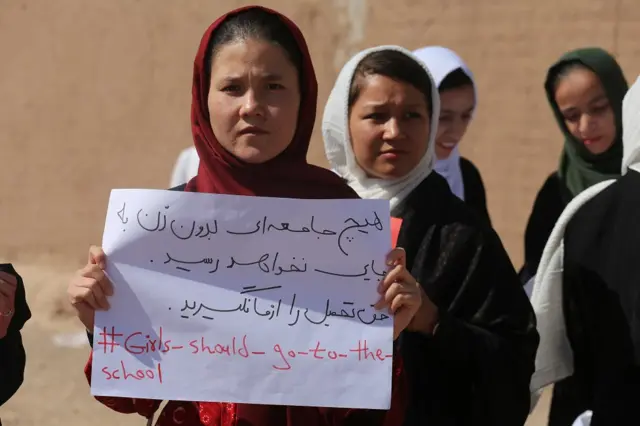 هیچ جامعه‌ای بدون زن به
جایی نخواهد رسید.
حق تحصیل را از ما نگیرید.
#Girls-should-go-to-the-
school